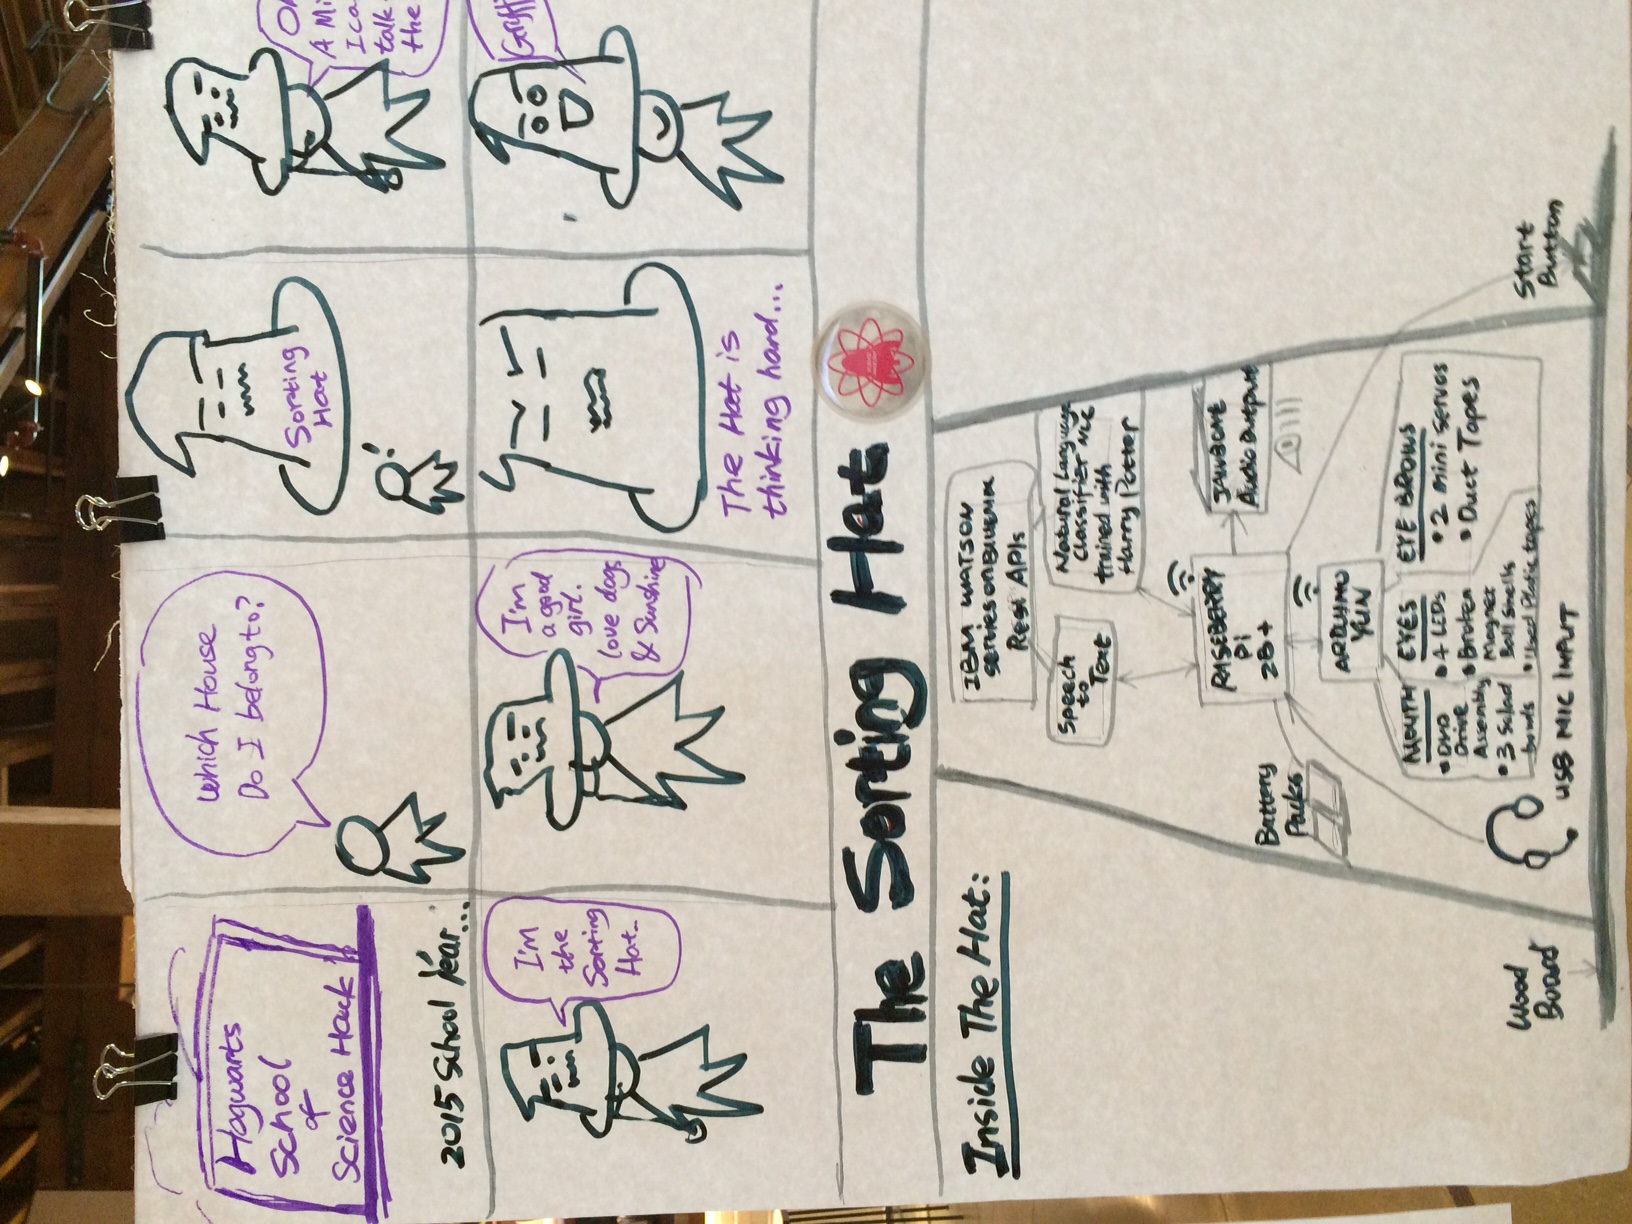 Hogwarts
School
of
Science Hack
2015 School Year...
Which House
Do I belong to?
Sorting
Hat
!
A Mi
talk
the
I'm
the
Sorting
Hat..
I'm
a good
girl.
love dogs
& Sunshine
The Hat is
thinking hard...
Gryff
The Sorting Hat
Inside The Hat:
IBM WATSON
series on BLUEMIX
Rest APIs
Speech
to
Text
Natural Language
Classifier NLC
trained with
Harry Potter
RASBERRY
Pi
2B+
JAWBONE
Audio Output
Battery
Packs
ARDUINO
YUN
MOUTH
• DVD
Drive
Assembly
• 3 Salad
bowls
EYES
• 4 LEDs
• Broken
Magnet
Ball Shells
• Used Platic tapes
EYE BROWS
• 2 mini servos
• Duct Tapes
Wood
Board
USB MIC INPUT
Start
Button